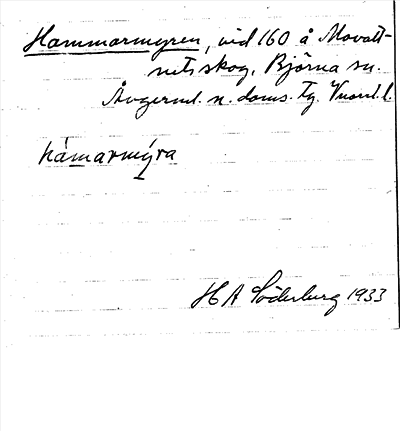 Hammarmyren, vid 160 å Movatt-
nets skog, Björna sn.
Ångerml. n. doms. tg. Vnorrl. l.
hámarmýra
H A Söderberg 1933